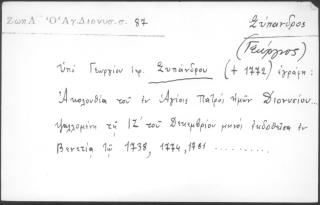 Ζωη Λ Ὁ Ἁγ. Διονυσ. σ. 87
Ξύπανδρος
(Γεώργιος)
Ὑπὸ Γεωργίου ἱερ. Ξυπάνδρου (+ 1772) ἐγράφη:
Ἀκολουθία τοῦ ἐν Ἁγίοις Πατρὸς ἡμῶν Διονυσίου...
ψαλλομένη τῇ ΙΖ΄ τοῦ Δεκεμβρίου μηνὸς ἐκδοθεῖσα ἐν
Βενετίᾳ τῷ 1738, 1774, 1781 .........